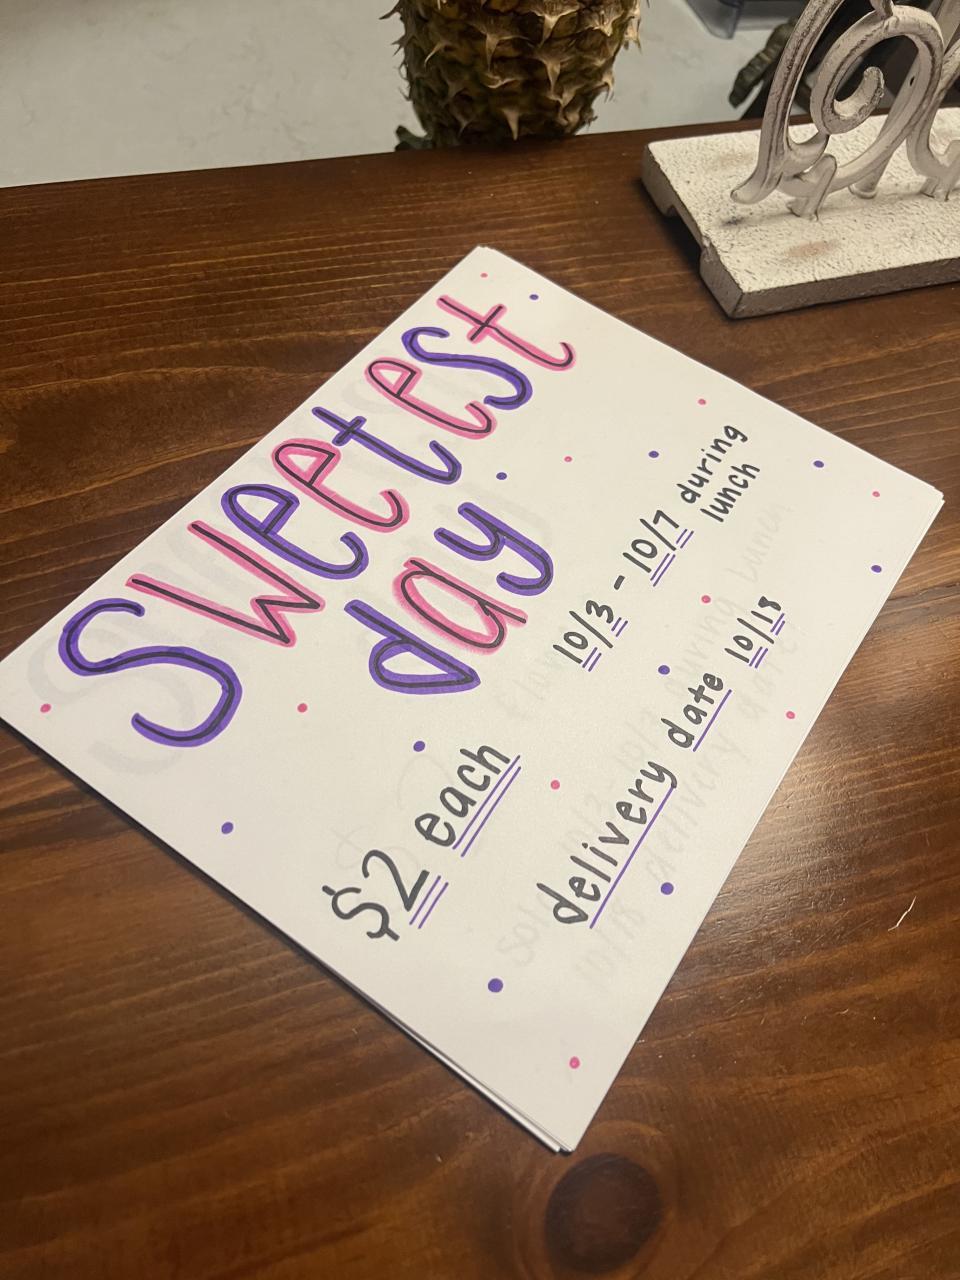 Sweetest
day
$2 each
10/3 - 10/7 during
lunch
delivery date 10/18